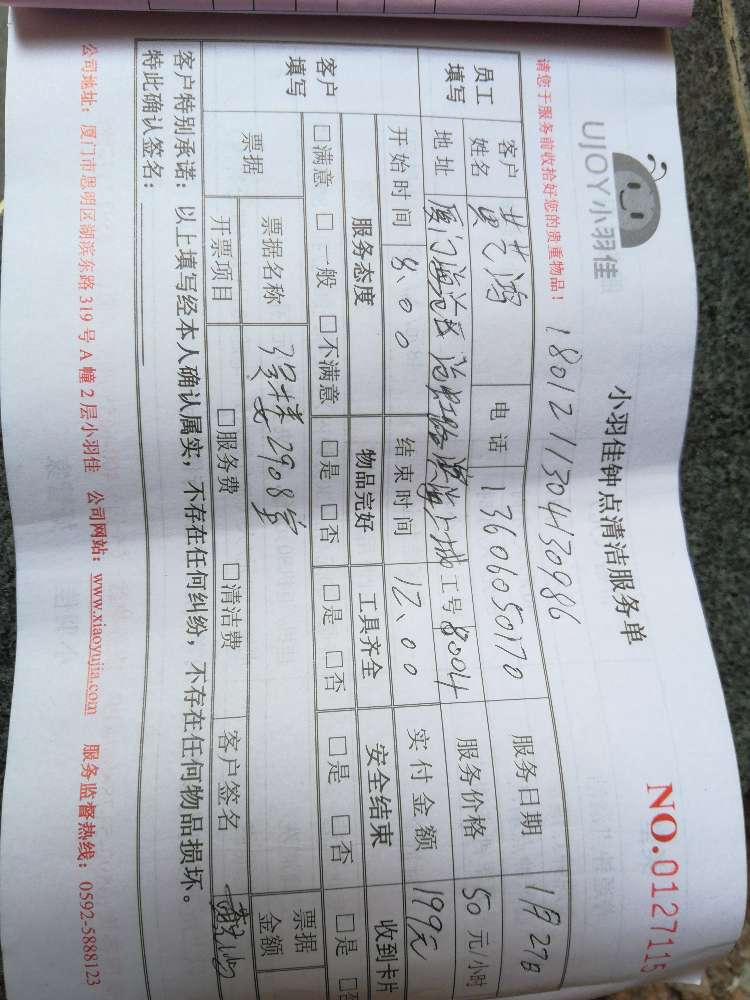 UJOY小羽佳
小羽佳钟点清洁服务单
NO.0127115
1801211304130986
请您于服务前收拾好您的贵重物品！
员工填写
客户姓名 黄艺鸿 电话 13606050170 服务日期 1月27日
地址 厦门海沧区沧虹路 上城 工号 8004 服务价格 50 元/小时
开始时间 8:00 结束时间 12:00 实付金额 199元
客户填写
服务态度 物品完好 工具齐全 安全结束 收到卡片
□满意 □一般 □不满意 □是 □否 □是 □否 □是 □否 □是
票据 票据名称 2908室 票据金额
开票项目 □服务费 □清洁费 客户签名
客户特别承诺：以上填写经本人确认属实，不存在任何纠纷，不存在任何物品损坏。
特此确认签名：
公司地址：厦门市思明区湖滨东路 319 号 A 幢 2 层小羽佳 公司网站：www.xiaoyujia.com 服务监督热线：0592-5888123